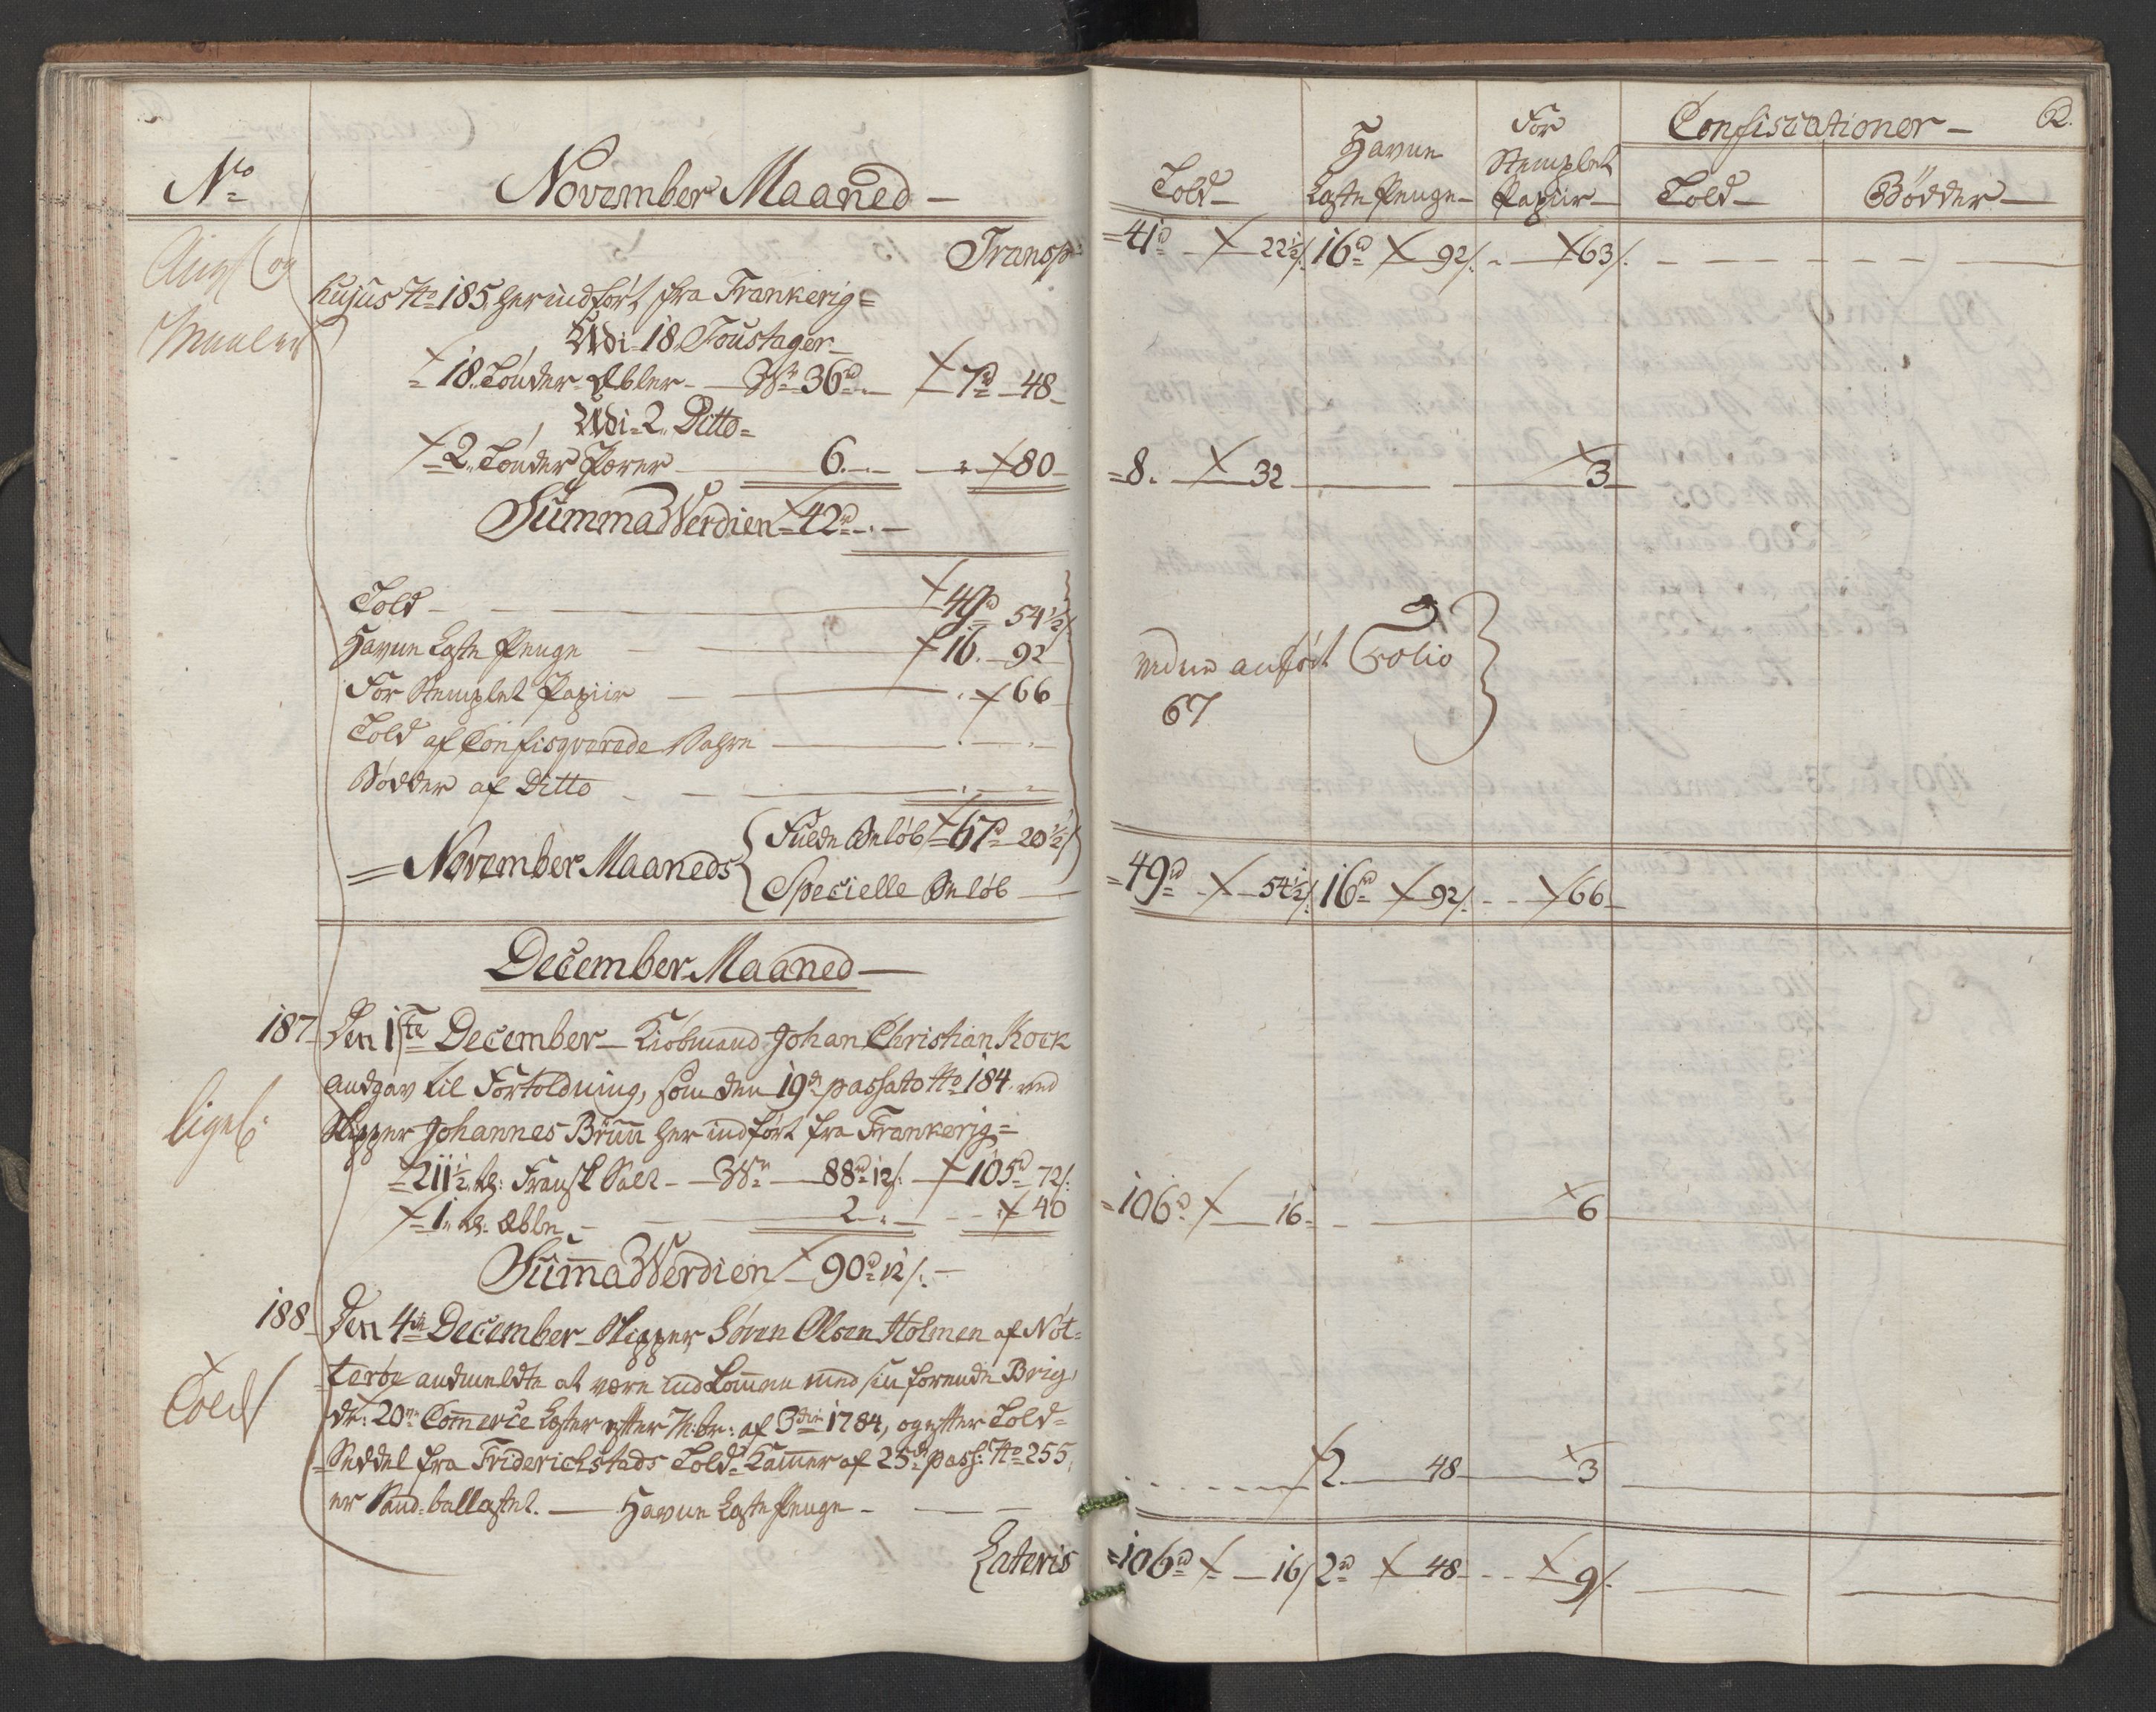 No
November Maaned —
Transp:
hujus No 185 her indført fra Frankerig =
Udi 18 Foustager
18 Tønder Æbler — W: 36rd — 7rd 48
Udi 2 Ditto =
2 Tønder Pærer — 6. — 80
Summa Werdien 42rd —
Told — 49rd 54½ s
Havne Laste Penge — 16. 92
For Stemplet Papiir — 66
Told af Confisqverede Vahre —
Bødder af Ditto —
November Maaneds { Fulde Beløb 67rd 20½ s
Specielle Beløb —
December Maaned —
187 Den 1ste December — Kiøbmand Johan Christian Kock
andgav til Fortoldning, som den 19de passato No 184 med
Skipper Johannes Brün her indført fra Frankerig =
211½ td: Fransk Salt — W: 88rd 12 s. 105rd 72 s.
ligel:
1 td: Æble — 2 . — 40
Summa Werdien 90rd 12 s. —
188 Den 4de December — Skipper Søren Olsen Holmen af Nøt=
terøe andmeldte at være indkommen med sin førende Brig,
Told
dr: 20 Commerce Læster efter M:br: af 3die 1784, og efter Told=
Seddel fra Friderichstads Told-Kammer af 25de pass: No 255,
er Sand-ballastet. — Havne Laste Penge —
Lateris
Told —
Havne
Laste Penge —
For
Stemplet
Papiir —
Confiscationer —
Told —
Bødder —
41rd 22½ s. 16rd 92 s. 63 s.
8. 32 3
vedne anført Folio
67
49rd 54½ s. 16rd 92 s. 66
106rd 16 6
2. 48 3
106rd 16 s 2rd 48 9 s.